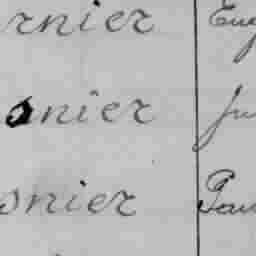 rnier Eug
snier Ju
snier Pau